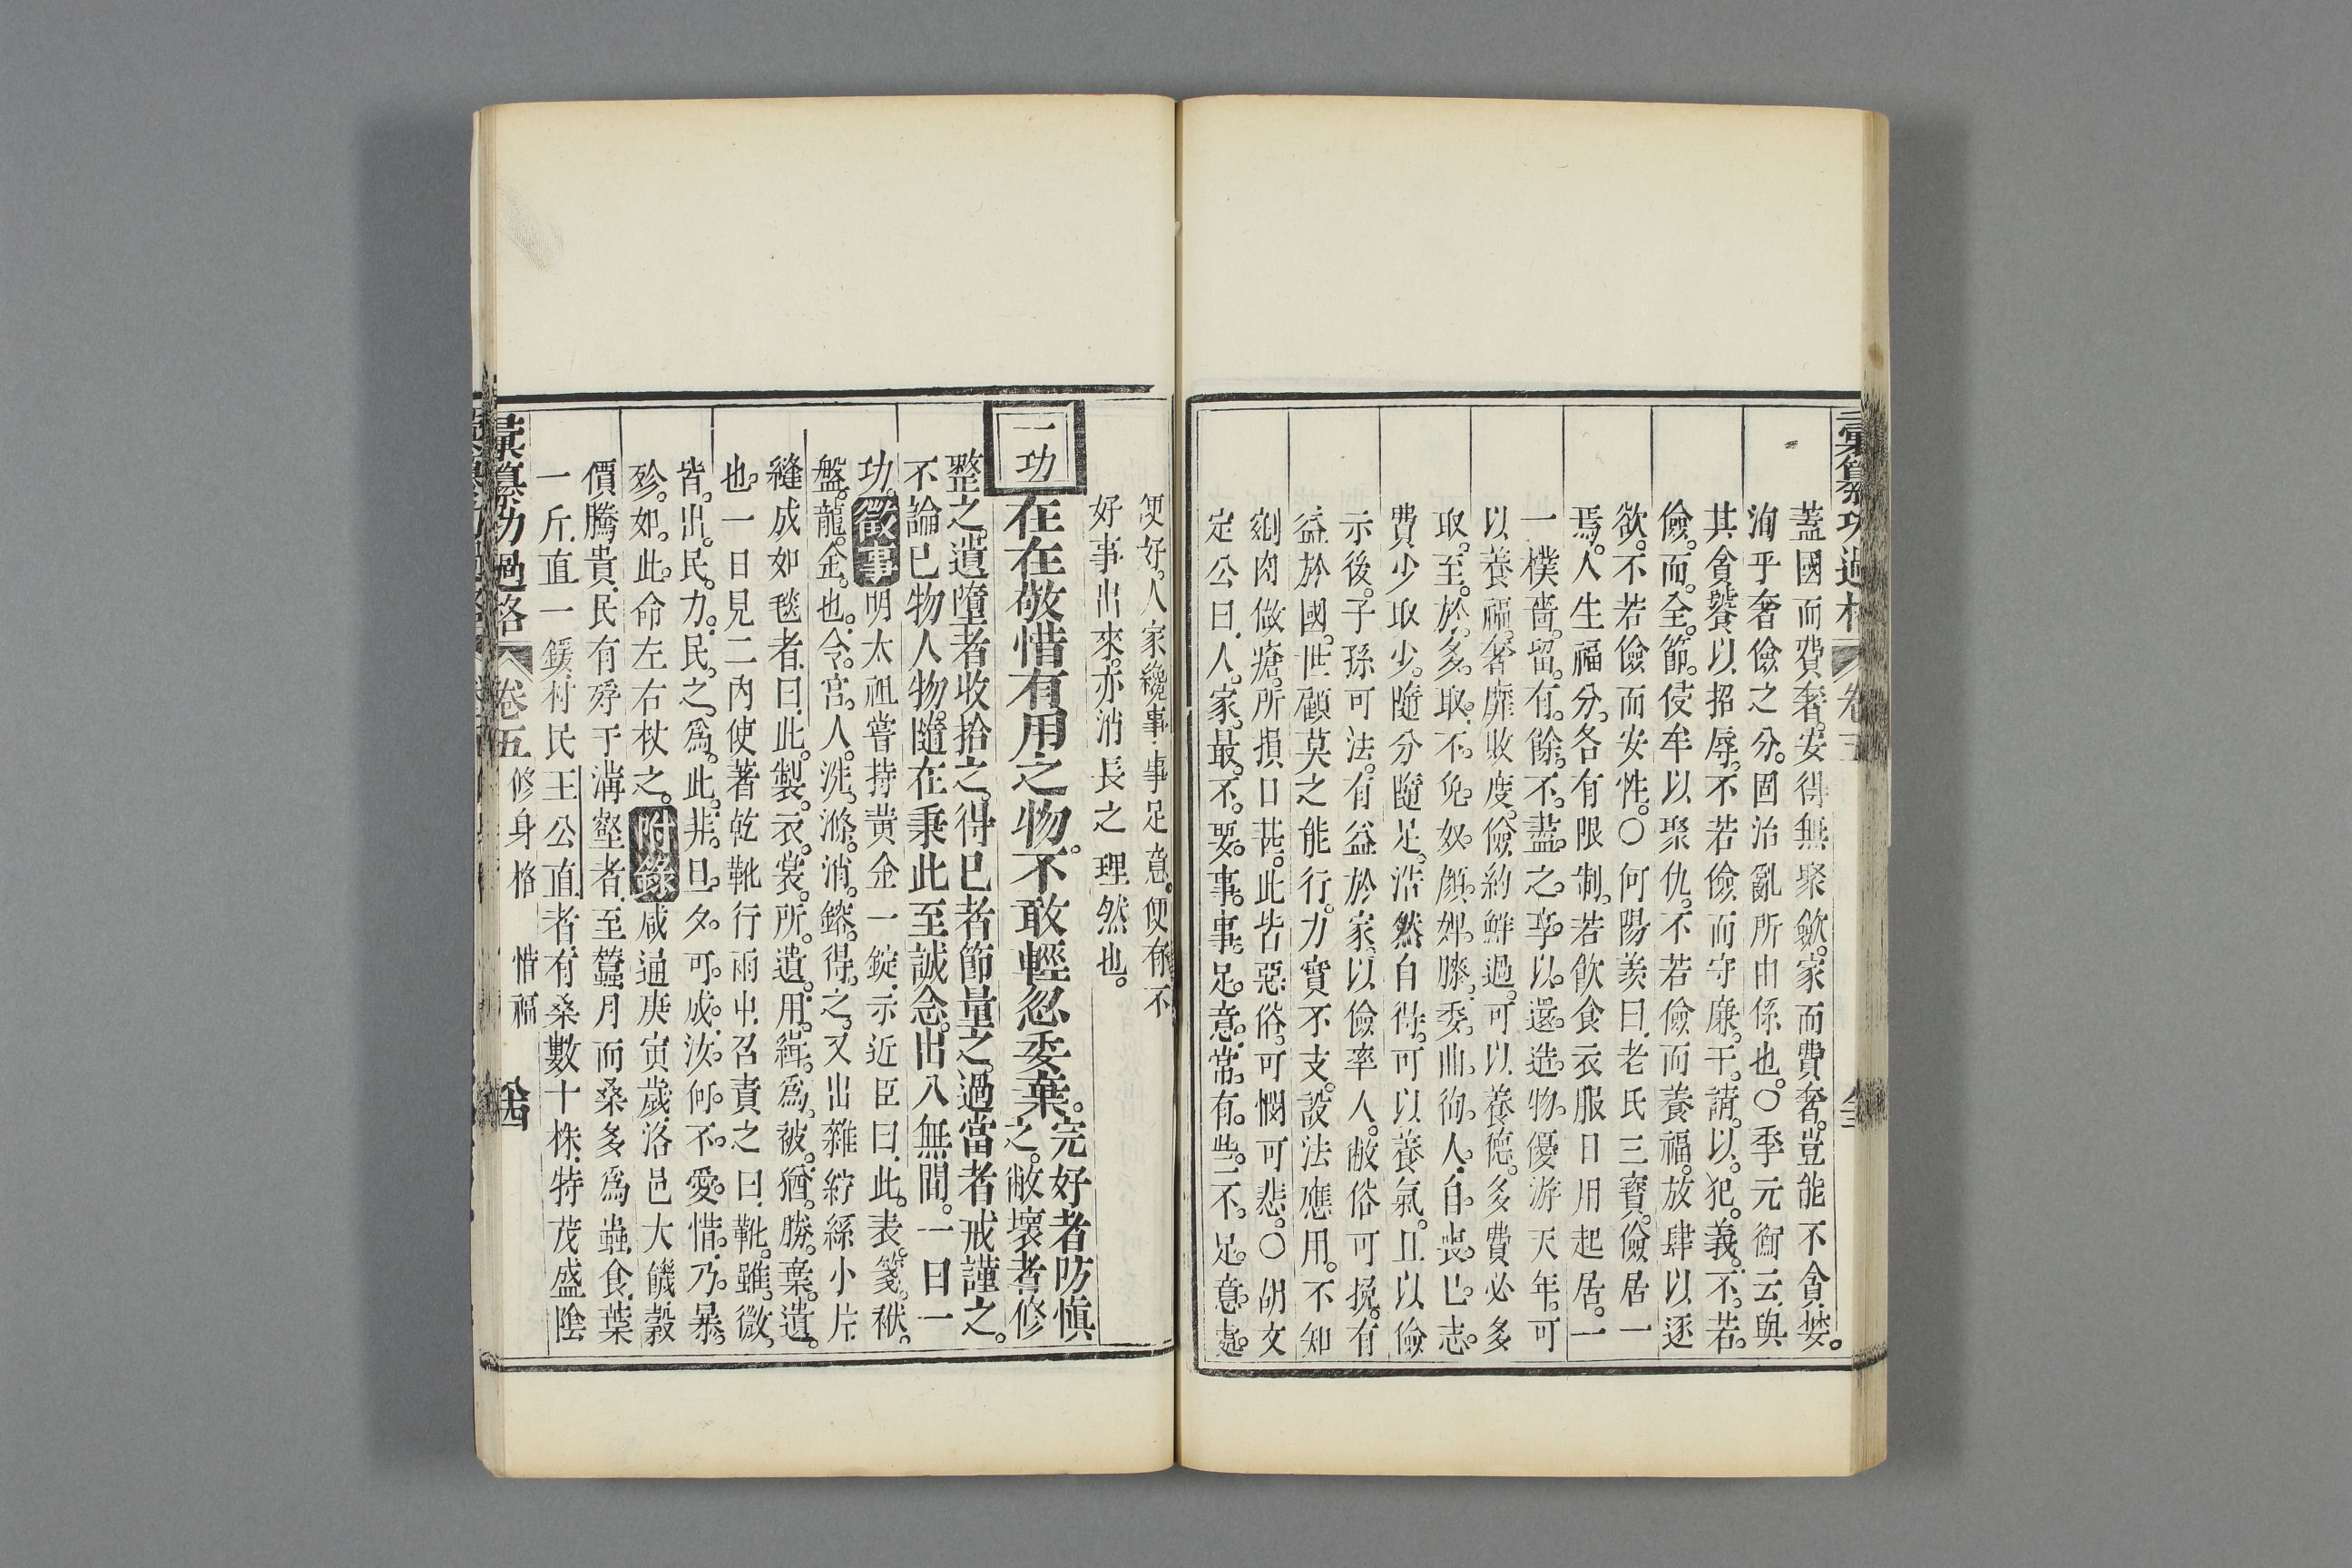 彙纂功過格 卷五
蓋國而費奢。安得無聚斂。家而費奢。豈能不貪婪。
洵乎奢儉之分。固治亂所由係也。○季元衡云。與
其貪饕以招辱。不若儉而守廉。干請以犯義。不若
儉而全節。侵牟以聚仇。不若儉而養福。放肆以逐
欲。不若儉而安性。○何陽羨曰。老氏三寶。儉居一
焉。人生福分。各有限制。若飲食衣服日用起居。一
一樸嗇。留有餘不盡之享。以還造物。優游天年。可
以養福。奢靡敗度。儉約鮮過。可以養德。多費必多
取。至於多取。不免奴顏婢膝。委曲徇人。自喪己志。
費少取少。隨分隨足。浩然自得。可以養氣。且以儉
示後。子孫可法。有益於家。以儉率人。敝俗可挽。有
益於國。世顧莫之能行。力實不支。設法應用。不知
剜肉做瘡。所損日甚。此皆惡俗。可憫可悲。○胡文
定公曰。人家最不要事事足意。常有些不足意處
便好。人家纔事事足意。便有不
好事出來。亦消長之理然也。
一功 在在敬惜有用之物。不敢輕忽委棄。完好者防愼
之。敝壞者修
整之。遺墮者收拾之。得已者節量之。過當者戒謹之。
不論已物人物。隨在秉此至誠念。出入無間。一日一
功。徵事 明太祖嘗持黃金一錠。示近臣曰。此表箋袱
盤龍金也。令宮人洗滌消鎔得之。又出雜紵絲小片
縫成如毯者。曰。此製衣裳所遺。用緝為被。猶勝棄遺
也。一日見二內使著乾靴行雨中。召責之曰。靴雖微。
皆出民力。民之為此。非旦夕可成。汝何不愛惜。乃暴
殄如此。命左右杖之。附錄 咸通庚寅歲。洛邑大饑。穀
價騰貴。民有殍于溝壑者。至蠶月而桑多為蟲食。葉
一斤。直一鍰。村民王公直者。有桑數十株。特茂盛陰
彙纂功過格 卷五 修身格 惜福 八四